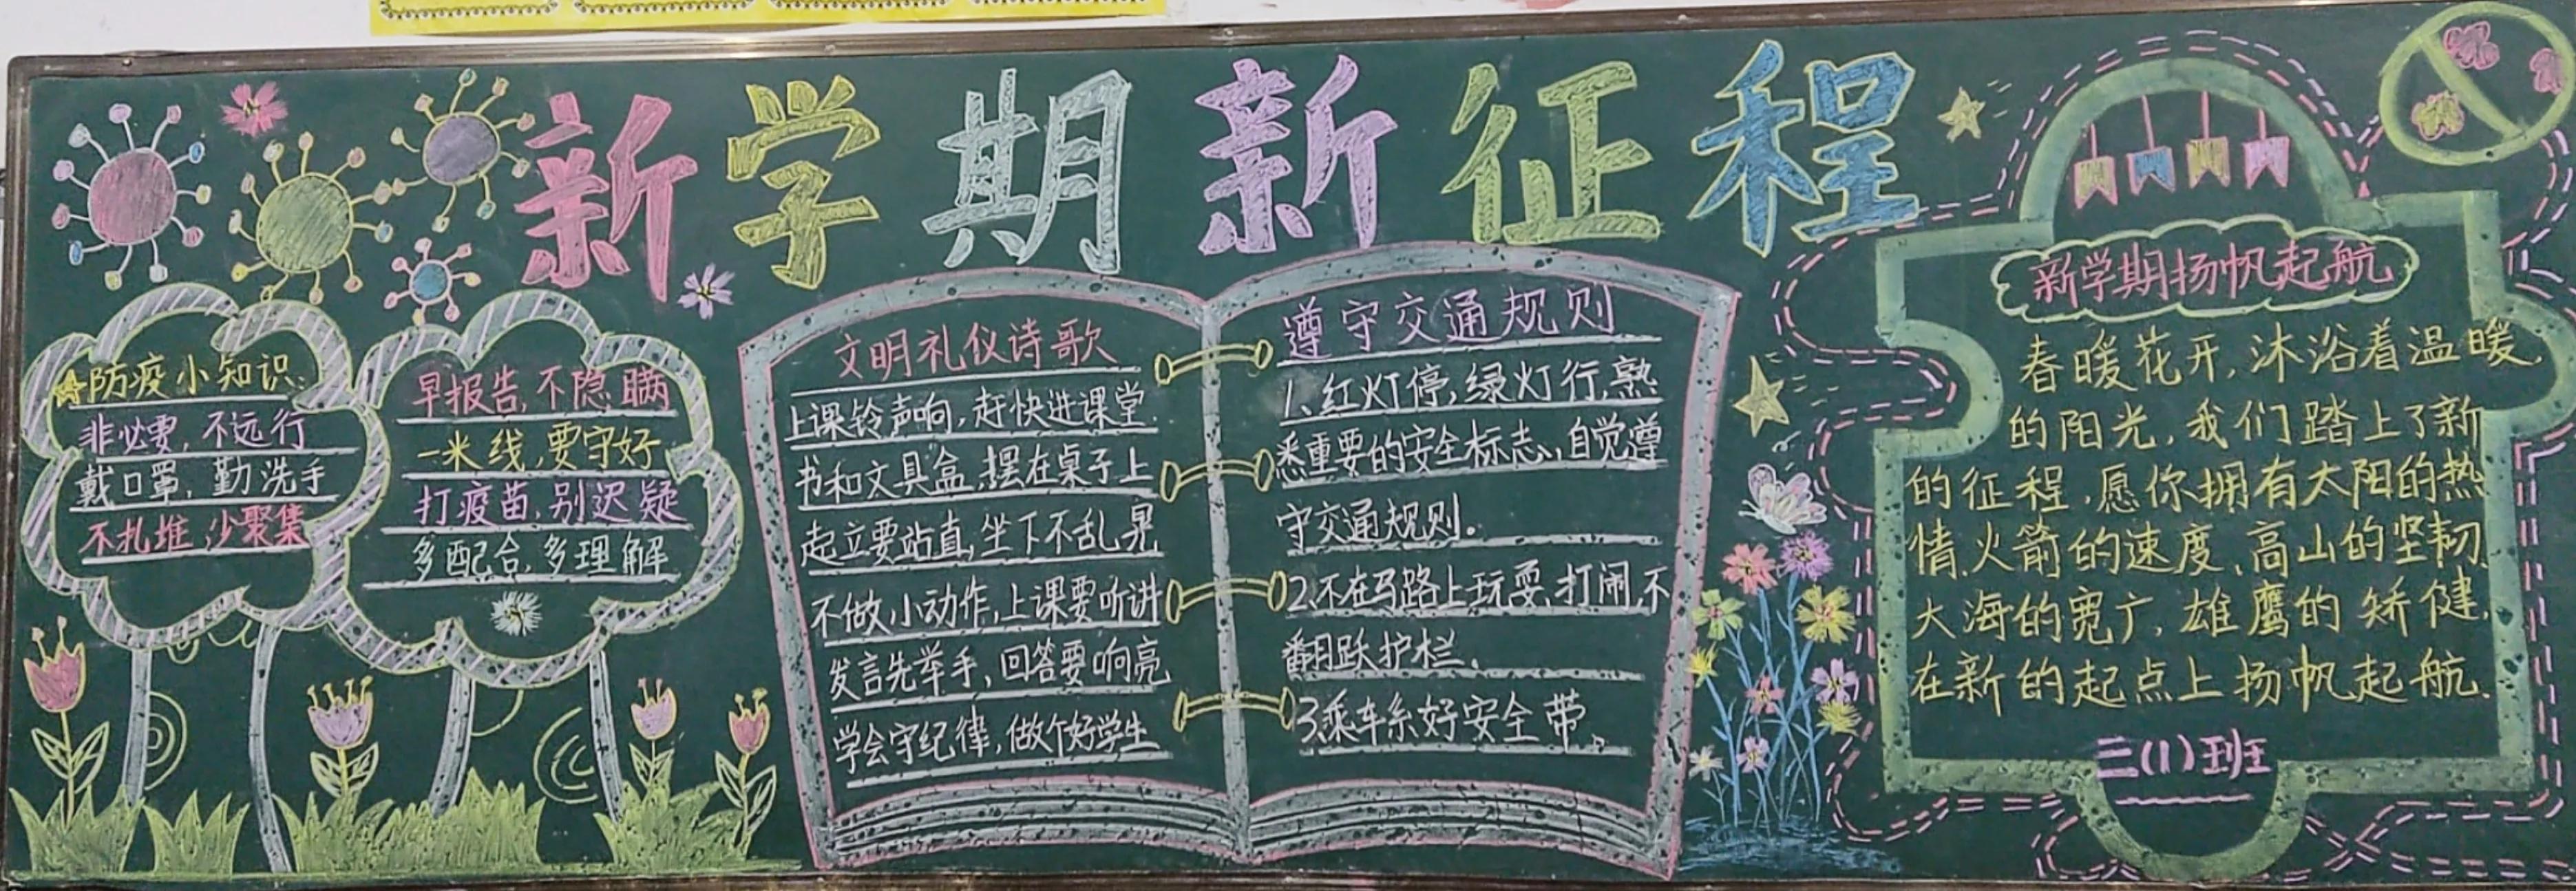 新学期新征程
☆防疫小知识:
非必要,不远行
戴口罩,勤洗手
不扎堆,少聚集
早报告,不隐瞒
一米线,要守好
打疫苗,别迟疑
多配合,多理解
文明礼仪诗歌
上课铃声响,赶快进课堂.
书和文具盒,摆在桌子上
起立要站直,坐下不乱晃
不做小动作,上课要听讲
发言先举手,回答要响亮
学会守纪律,做个好学生
遵守交通规则
1、红灯停,绿灯行,熟
悉重要的安全标志,自觉遵
守交通规则。
2、不在马路上玩耍、打闹,不
翻跃护栏.
3、乘车系好安全带。
新学期扬帆起航
春暖花开,沐浴着温暖
的阳光,我们踏上了新
的征程,愿你拥有太阳的热
情、火箭的速度、高山的坚韧、
大海的宽广,雄鹰的矫健,
在新的起点上扬帆起航.
三(1)班